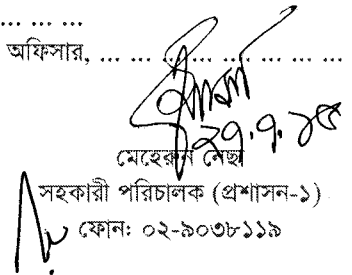 ... ... ...
অফিসার, ... ... ... ... ... ... ...
২৭.৭.১৫
মেহেরুন নেছা
সহকারী পরিচালক (প্রশাসন-১)
ফোন: ০২-৯০৩৮১১৯